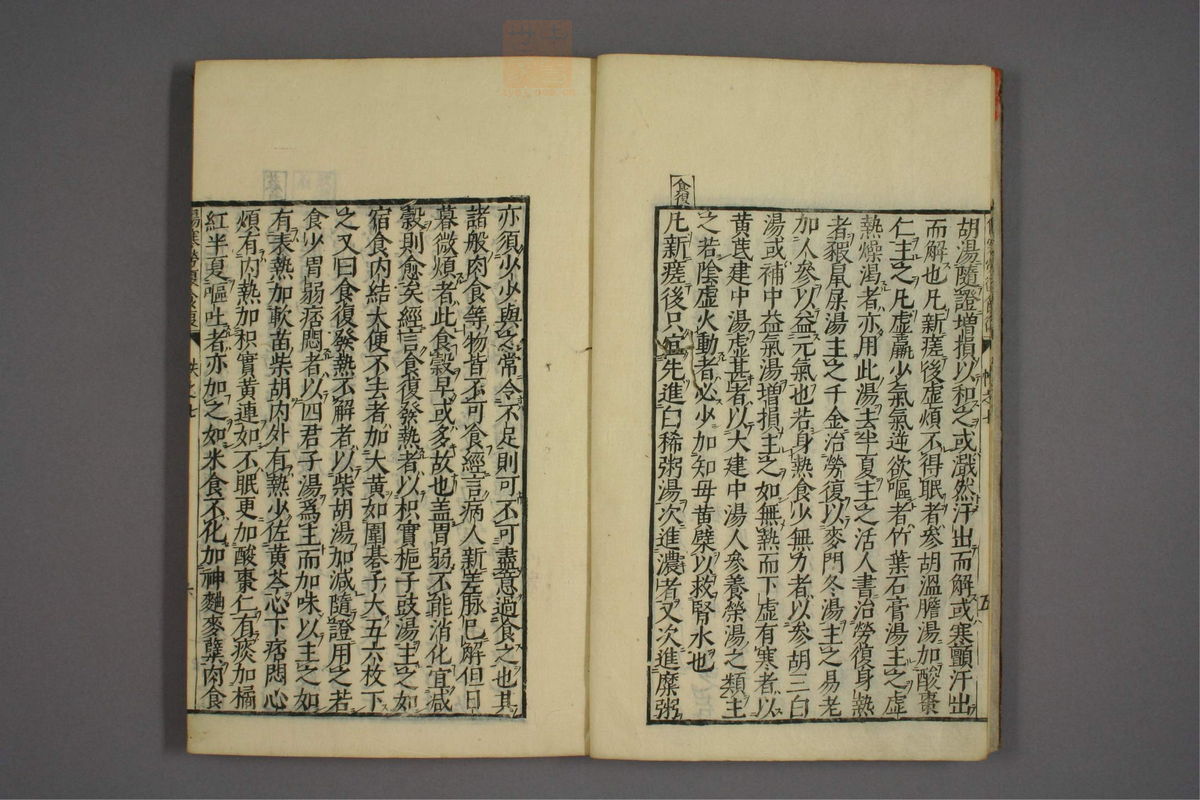 胡湯隨證増損以和之或濈然汗出而解或寒顫汗出
而解也凡新瘥後虛煩不得眠者參胡溫膽湯加酸棗
仁主之凡虛羸少氣氣逆欲嘔者竹葉石膏湯主之虛
熱燥渴者亦用此湯去半夏主之活人書治勞復身熱
者豭鼠屎湯主之千金治勞復以麥門冬湯主之易老
加人參以益元氣也若身熱食少無力者以參胡三白
湯或補中益氣湯增損主之如無熱而下虛有寒者以
黃芪建中湯虛甚者以大建中湯人參養榮湯之類主
之若陰虛火動者必少加知母黃檗以救腎水也
食復
凡新瘥後只宜先進白稀粥湯次進濃者又次進糜粥
亦須少少與之常令不足則可不可盡意過食之也其
諸般肉食等物皆不可食經言病人新差脉已解但日
暮微煩者此食穀早或多故也盖胃弱不能消化宜减
穀則愈矣經言食復發熱者以枳實梔子豉湯主之如
宿食内結大便不去者加大黃如圍碁子大五六枚下
之又曰食復發熱不解者以柴胡湯加減隨證用之若
食少胃弱痞悶者以四君子湯爲主而加味以主之如
有表熱加軟苗柴胡内外有熱少佐黃芩心下痞悶心
煩有内熱加枳實黃連如不眠更加酸棗仁有痰加橘
紅半夏嘔吐者亦加之如米食不化加神麯麥櫱肉食